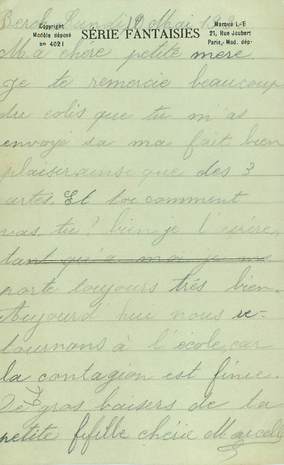 Lundi 19 Mai
Copyright
Modèle déposé
SÉRIE FANTAISIES
Marques L-E
21, Rue Joubert
Paris, Mod. dép.
Ma chère petite mère
Je te remercie beaucoup
du colis que tu m as
envoye sa ma fait bien
plaisir ainsi que des 3
artes. Et toi comment
vas tu? bien je l'espère,
tant qu'a moi je me
porte toujours très bien.
Aujourd hui nous re-
tournons à l'école, car
la contagion est finie.
De gros baisers de ta
petite fifille chérie Marcelle